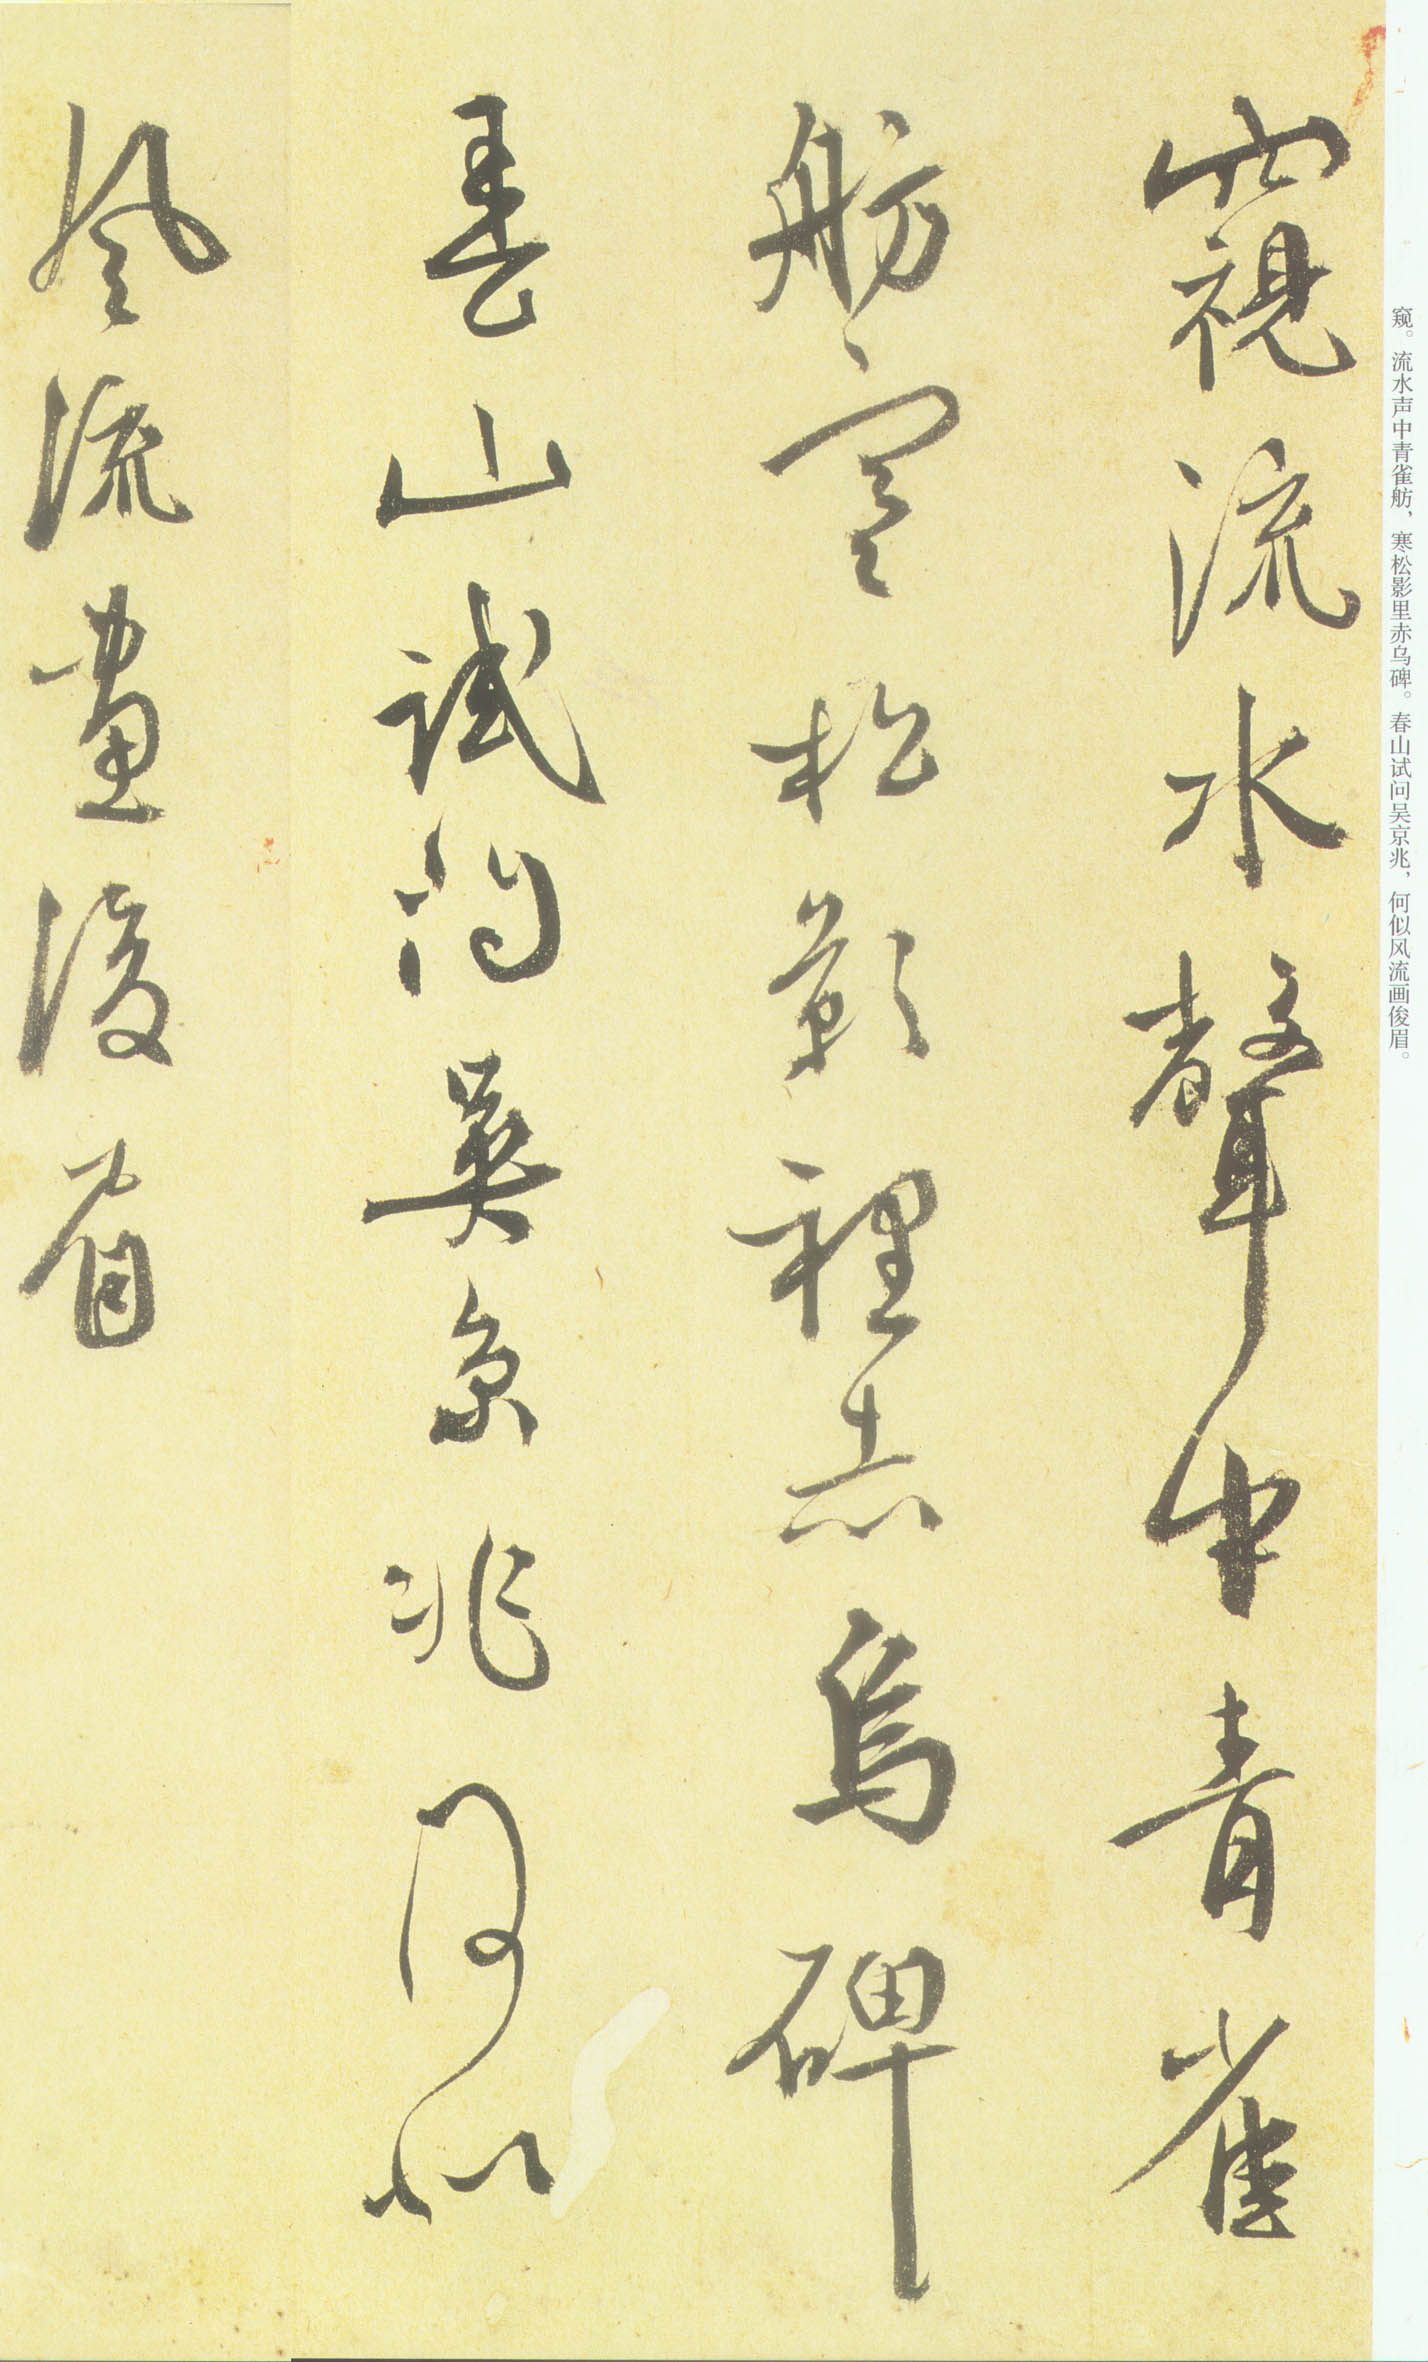 窺。流水声中青雀舫，寒松影里赤乌碑。春山试问吴京兆，何似风流画俊眉。
窺流水聲中青雀
舫寒松影裡赤烏碑
春山試問吳京兆何似
風流畫浚眉